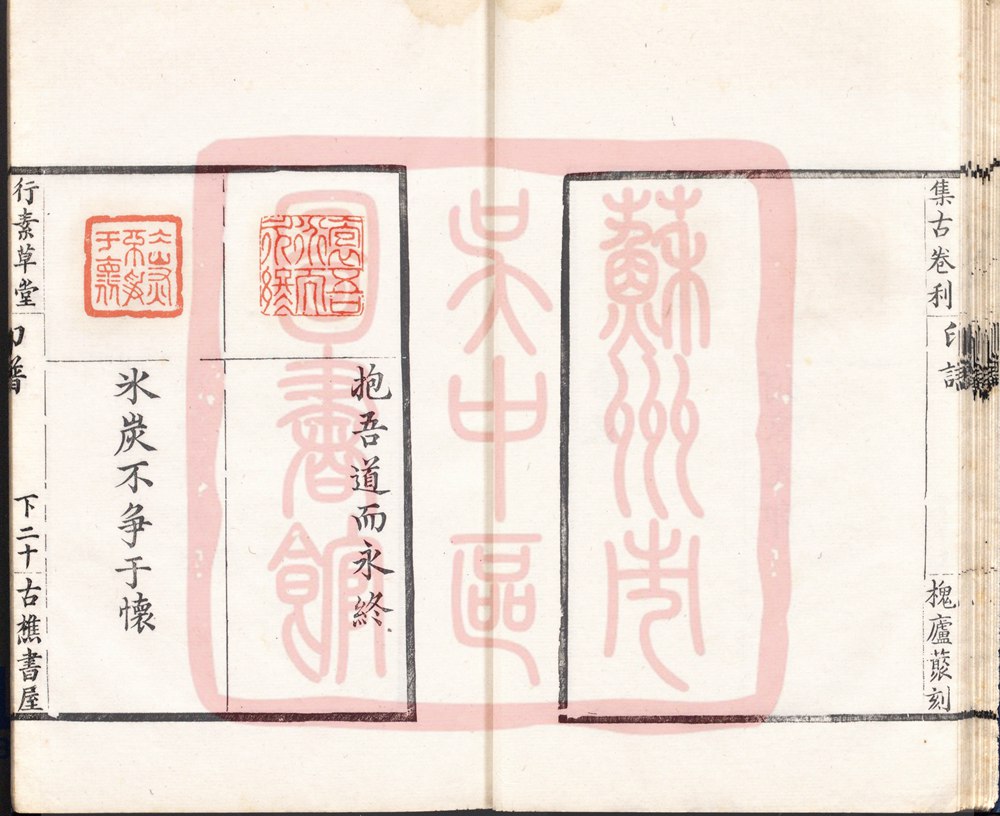 集古卷利
印譜
槐廬藂刻
蘇州市
吴中區
圖書館
抱吾道而永終
氷炭不争于懷
行素草堂
印譜
下二十
古樵書屋